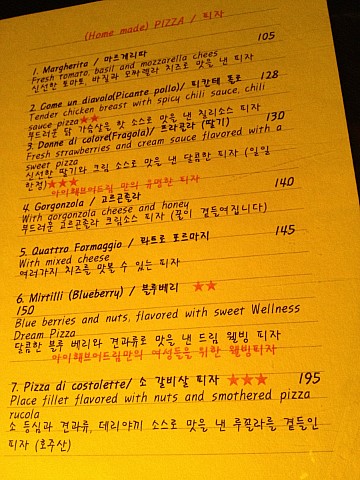 (Home made) PIZZA / 피자
1. Margherita / 마르게리따 105
Fresh tomato, basil and mozzarella chees
신선한 토마토, 바질과 모짜렐라 치즈로 맛을 낸 피자
2. Come un diavolo(Picante pollo)/ 피칸테 폴로 128
Tender chicken breast with spicy chili sauce, chili
sauce pizza★★
부드러운 닭 가슴살을 핫 소스로 맛을 낸 칠리소스 피자
3. Donne di colore(Fragola)/ 프라골라 (딸기) 130
Fresh strawberries and cream sauce flavored with a
sweet pizza
신선한 딸기와 크림 소스로 맛을 낸 달콤한 피자 (일일
한정)★★★
아이해브어드림 만의 유명한 피자
4. Gorgonzola / 고르곤졸라 140
With gorgonzola cheese and honey
부드러운 고르곤졸라 크림소스 피자 (꿀이 곁들여집니다)
5. Quattro Formaggio / 콰트로 포르마지 145
With mixed cheese
여러가지 치즈를 맛볼 수 있는 피자
6. Mirtilli (Blueberry) / 블루베리 ★★
150
Blue berries and nuts, flavored with sweet Wellness
Dream Pizza
달콤한 블루 베리와 견과류로 맛을 낸 드림 웰빙 피자
아이해브어드림만의 여성들을 위한 웰빙피자
7. Pizza di costolette/ 소 갈비살 피자 ★★★ 195
Place fillet flavored with nuts and smothered pizza
rucola
소 등심과 견과류, 데리야끼 소스로 맛을 낸 루꼴라를 곁들인
피자 (호주산)